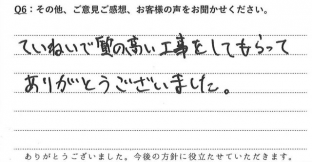 Q6：その他、ご意見ご感想、お客様の声をお聞かせください。
ていねいで質の高い工事をしてもらって
ありがとうございました。
ありがとうございました。今後の方針に役立たせていただきます。